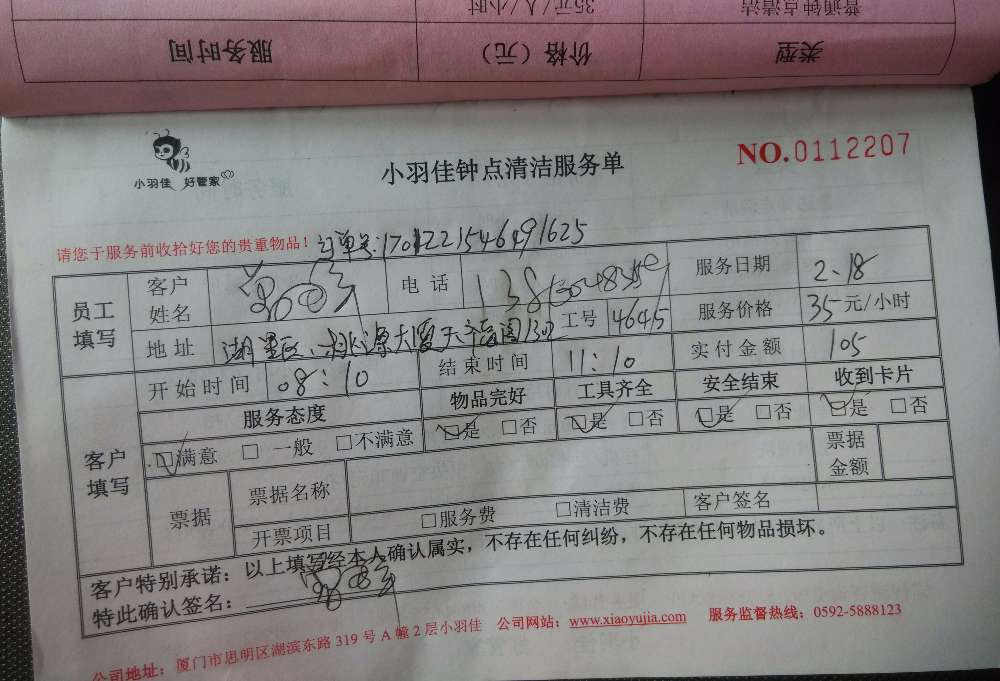 普通钟点清洁 35元/人/小时
类型 价格（元） 服务时间
小羽佳 好管家
小羽佳钟点清洁服务单
NO.0112207
请您于服务前收拾好您的贵重物品！订单号:1701221546491625
员工填写 客户姓名 电话 服务日期 2.18
地址 工号 4645 服务价格 35元/小时
客户填写 开始时间 08:10 结束时间 11:10 实付金额 105
服务态度 物品完好 工具齐全 安全结束 收到卡片
☑满意 □一般 □不满意 ☑是 □否 ☑是 □否 ☑是 □否 ☑是 □否
票据 票据名称 票据金额
开票项目 □服务费 □清洁费 客户签名
客户特别承诺：以上填写经本人确认属实，不存在任何纠纷，不存在任何物品损坏。
特此确认签名：
公司地址：厦门市思明区湖滨东路319号A幢2层小羽佳 公司网站：www.xiaoyujia.com 服务监督热线：0592-5888123